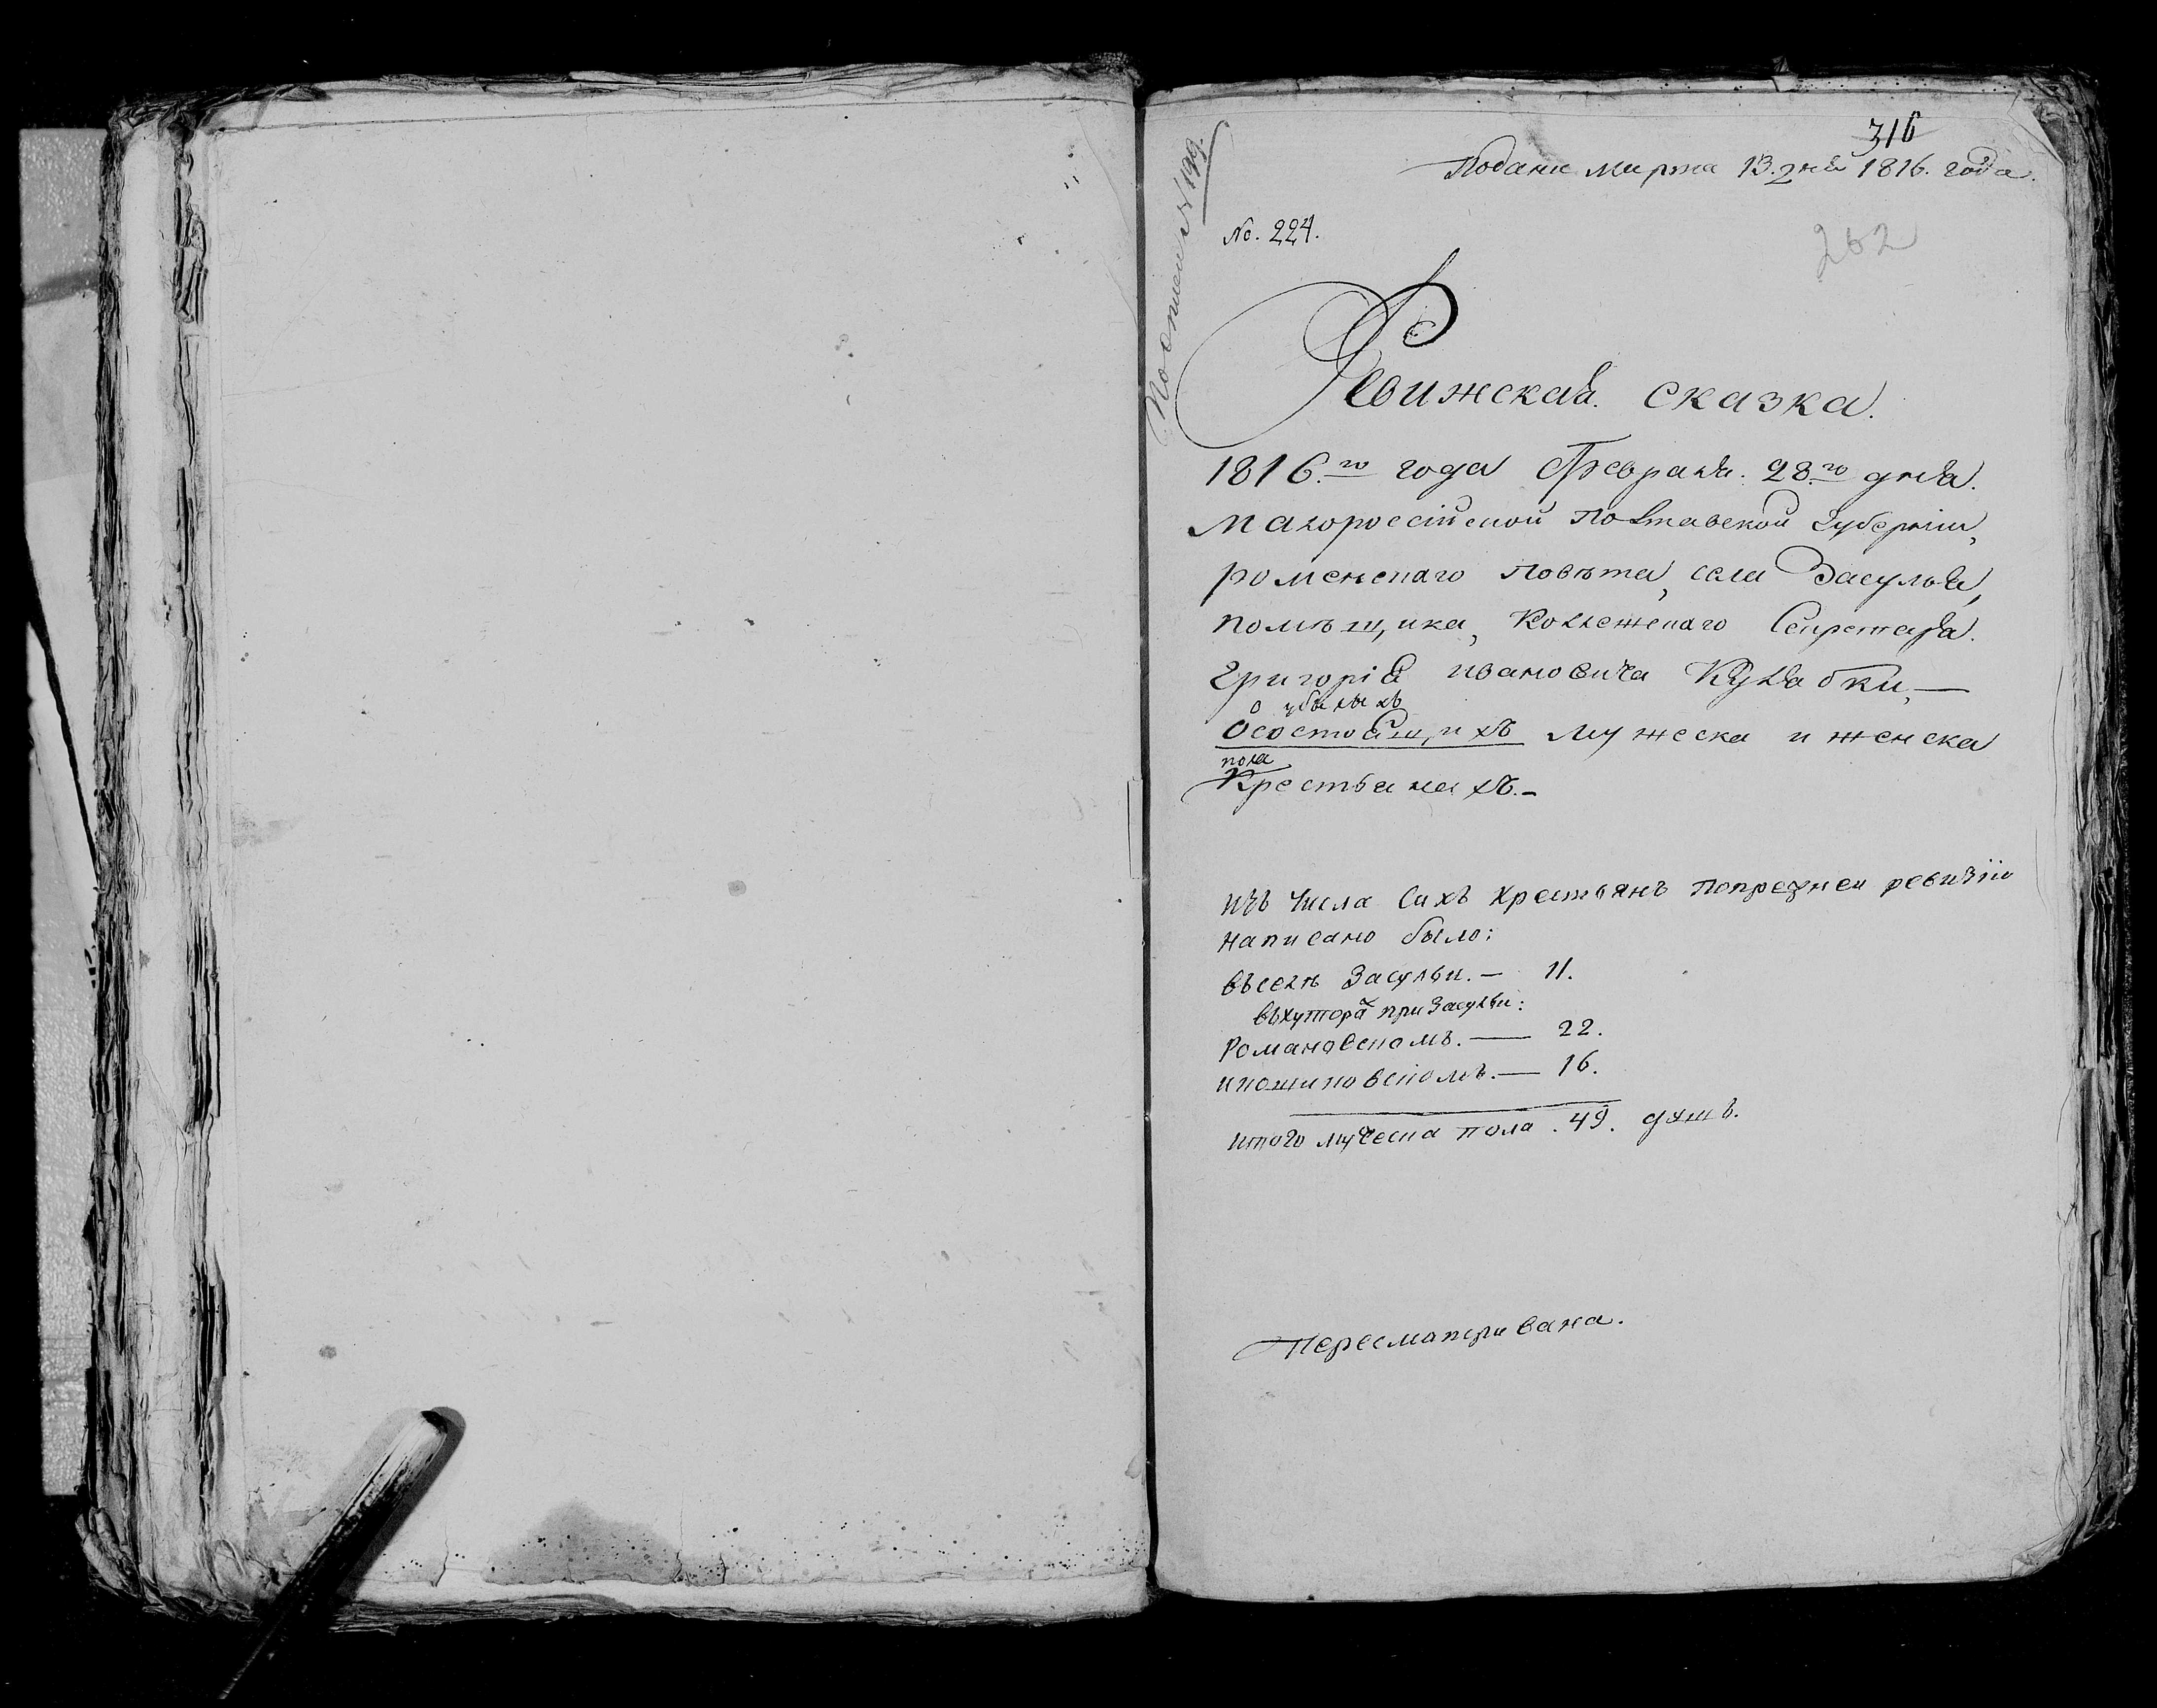 316
Подана марта 13. дня 1816. года.
По описи № 199.
No. 224.
262
Ревижская сказка.
1816.го года Февраля. 28.го дня.
малороссійской полтавской губерніи,
роменскаго повѣта, села Засулья,
помѣщика, Коллежскаго Секретаря.
Григорія ивановича Кулябки, —
о убылыхъ
осостоящихъ мужеска и женска
пола
Крестьянахъ. -
изъ числа сихъ крестьянъ попрежней ревизіи
написано было:
въселѣ Засульи. — 11.
въхутора при Засульи:
Романовскомъ. — 22.
— 16.
итого мужеска пола . 49. душъ.
Пересматривана.